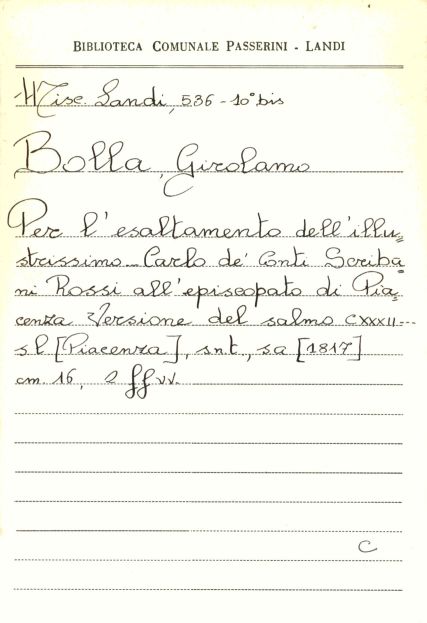 BIBLIOTECA COMUNALE PASSERINI - LANDI
Misc. Landi, 536 - 10° bis
Bolla, Girolamo
Per l'esaltamento dell'illu=
strissimo... Carlo de' Conti Scriba
ni Rossi all'episcopato di Pia=
cenza Versione del salmo CXXXII...
s.l. [Piacenza], s.n.t., s.a [1817]
cm. 16, 2 ff vv.
C